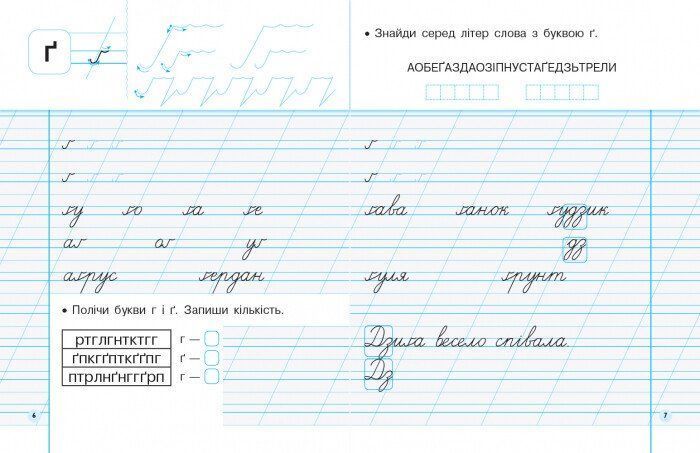 ґ
ґ ґ ґ
ґ ґ ґ
ґу ґо ґа ґе
аґ оґ уґ
аґрус ґердан
• Полічи букви г і ґ. Запиши кількість.
ртглгнтктгг г —
ґпкгґпткґґпг ґ —
птрлнґнггґрп г —
6
• Знайди серед літер слова з буквою ґ.
АОБЕҐАЗДАОЗІПНУСТАҐЕДЗЬТРЕЛИ
ґ ґ ґ
ґ ґ ґ
ґава ґанок ґудзик
дз
ґуля ґрунт
Дзиґа весело співала.
Дз
7